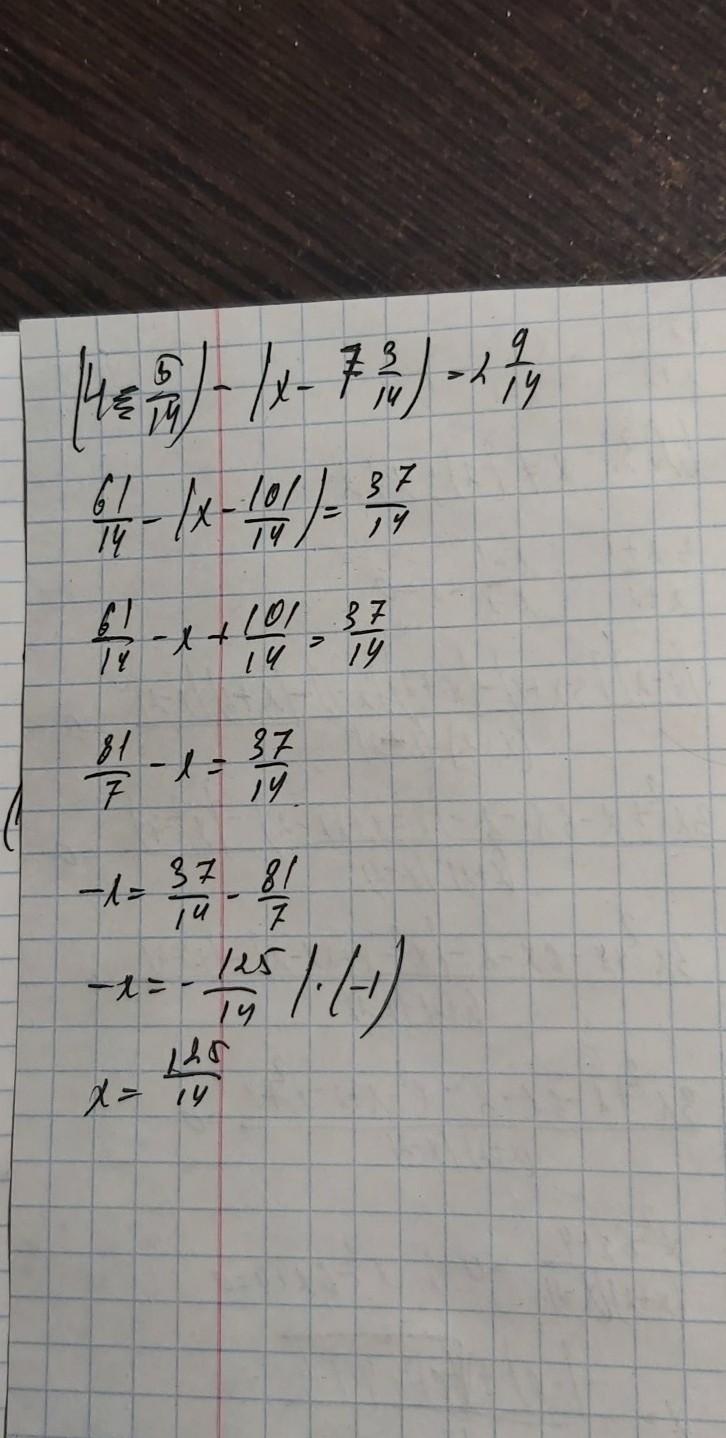 (4 5/14) - (x - 7 3/14) = 2 9/14
61/14 - (x - 101/14) = 37/14
61/14 - x + 101/14 = 37/14
81/7 - x = 37/14
-x = 37/14 - 81/7
-x = - 125/14 | · (-1)
x = 125/14